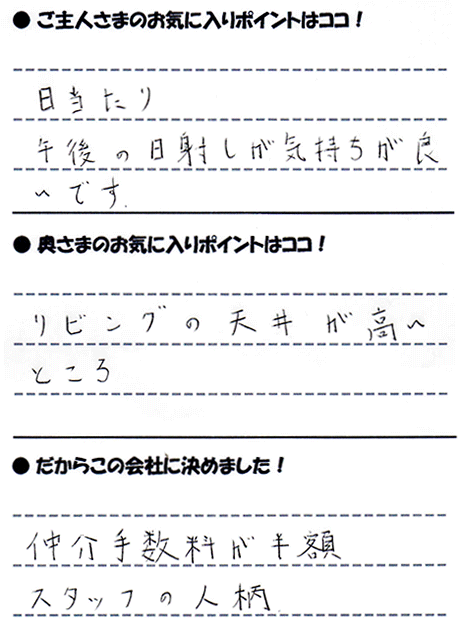 ● ご主人さまのお気に入りポイントはココ！
日当たり
午後の日射しが気持ちが良
いです.
● 奥さまのお気に入りポイントはココ！
リビングの天井が高い
ところ
● だからこの会社に決めました！
仲介手数料が半額
スタッフの人柄